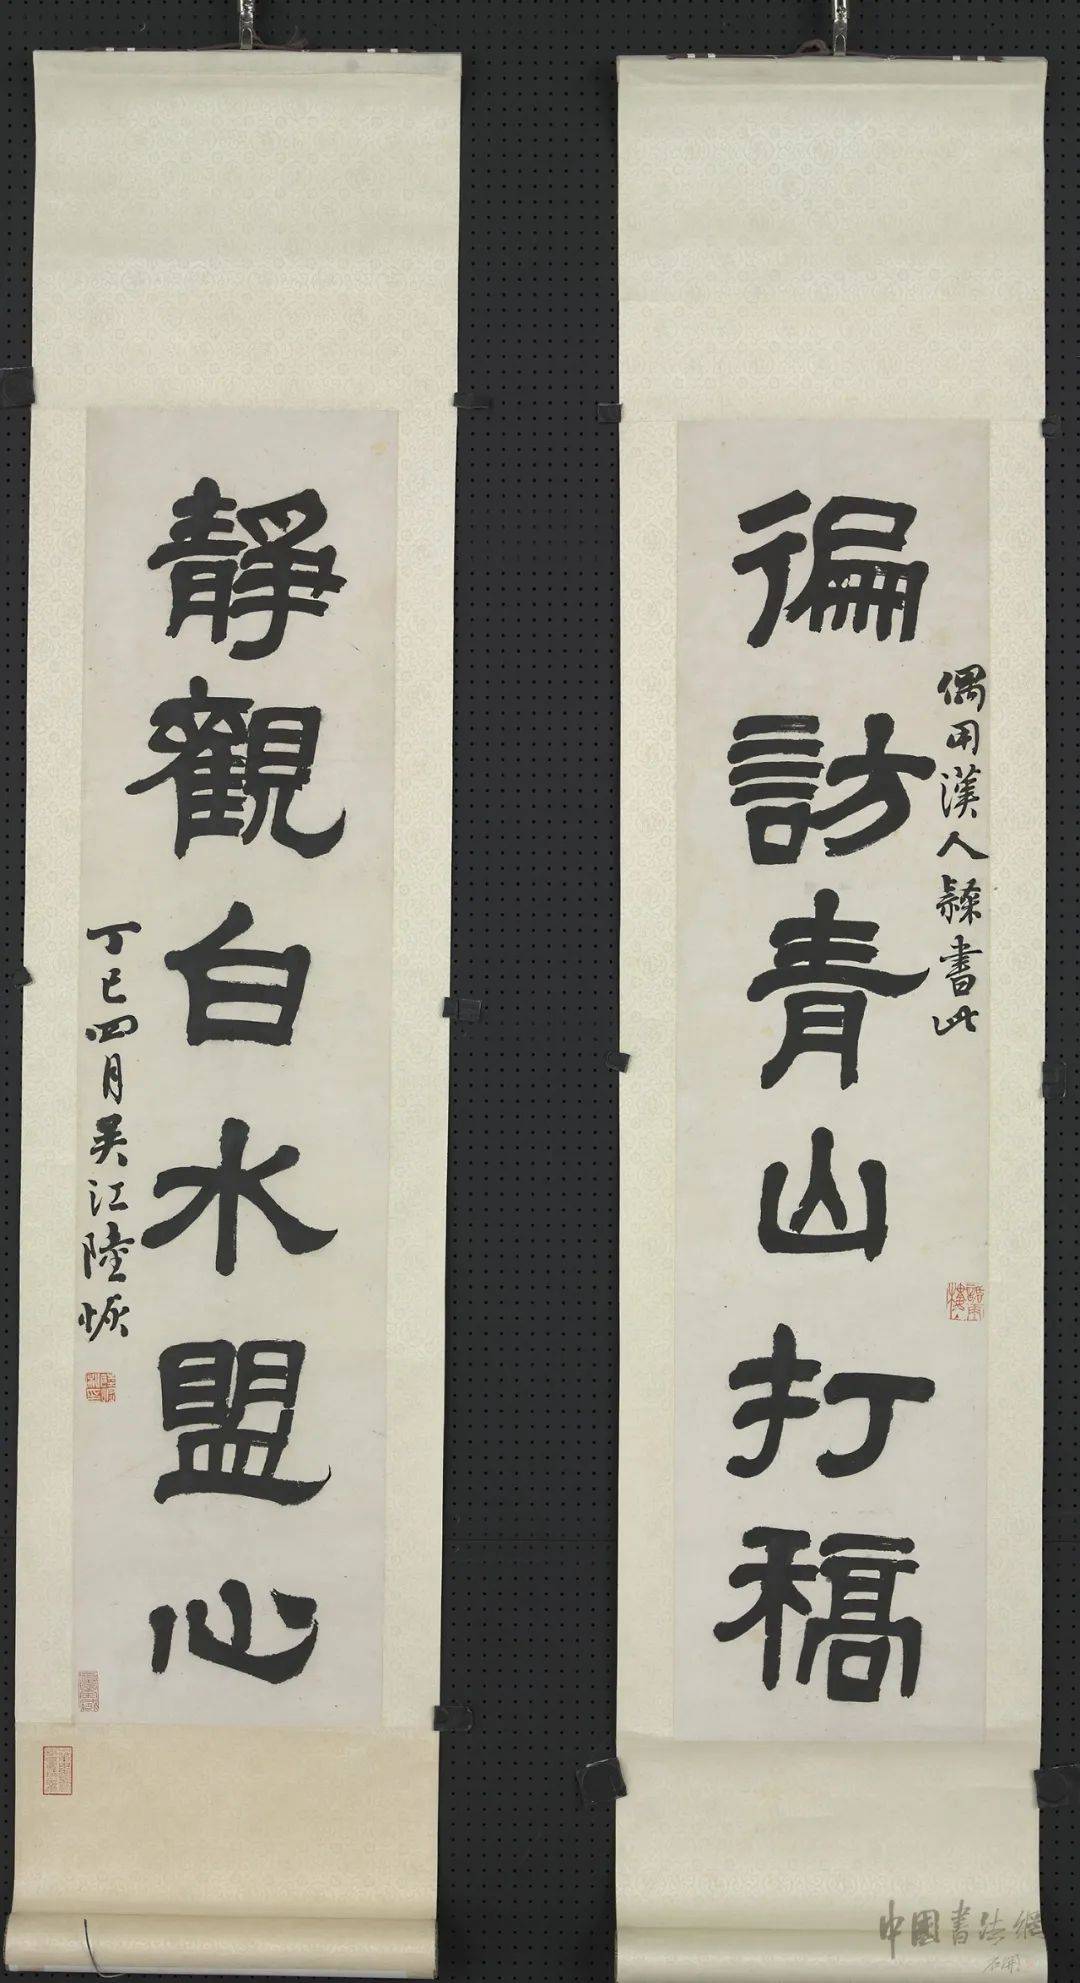 徧訪青山打稿
偶用漢人隸書此
靜觀白水盟心
丁巳四月吳江陸恢
中國書法網